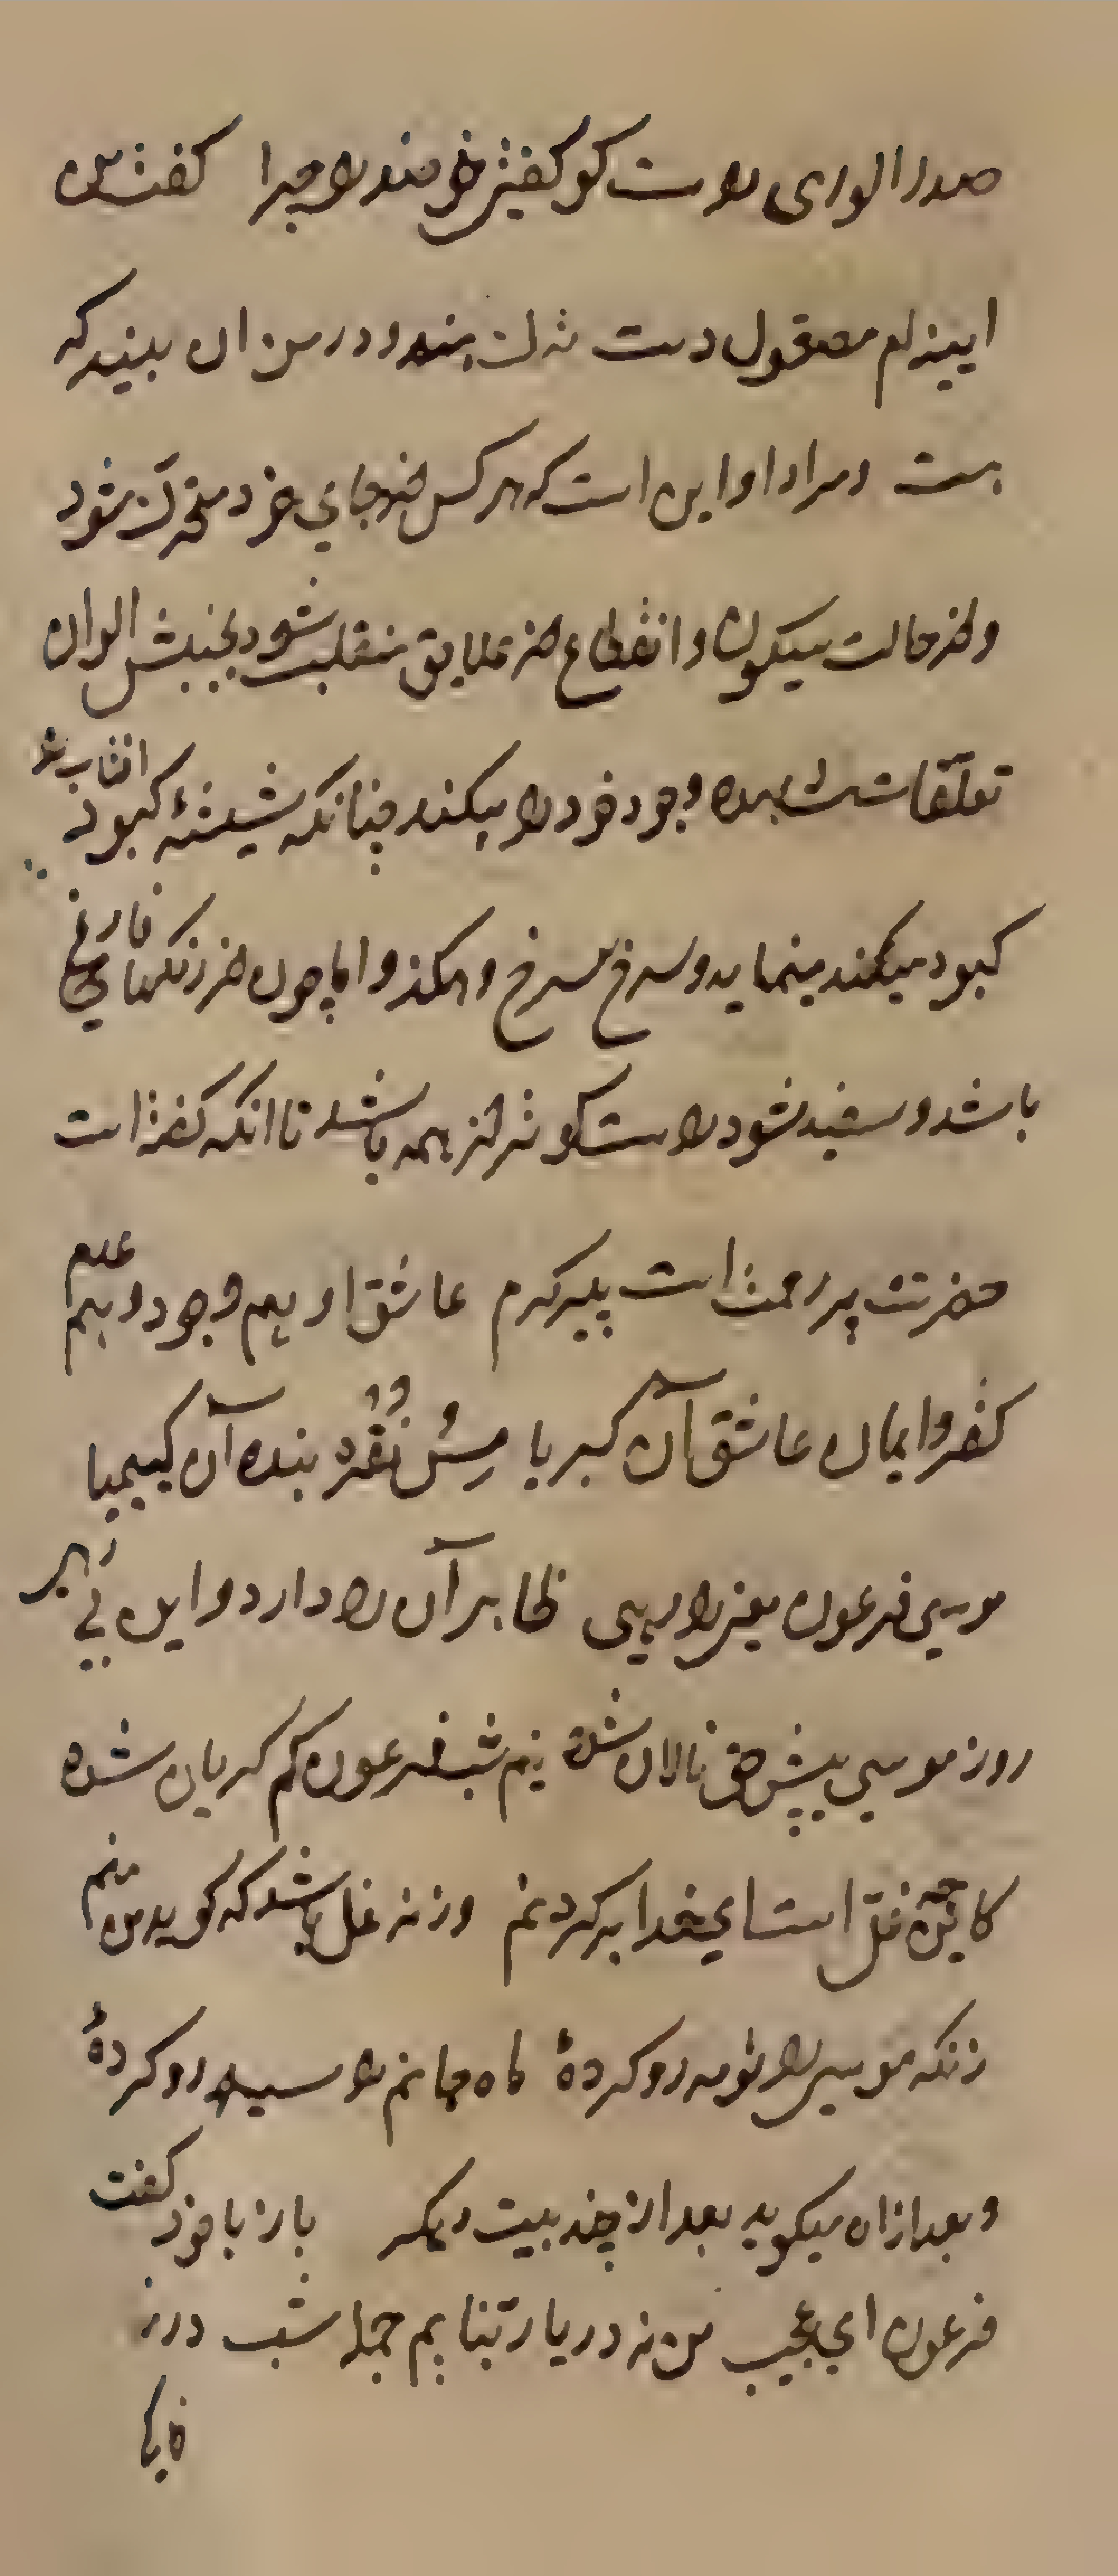 صدر الوری راست گو گفتی خردمند را چرا گفت من
آیینه‌ام مصقول دست ترک هندو در من آن بیند که
هست و مراد او این است که هر کس از جای خود متحرک شود
و از حالت سکون و انقطاع از علایق منقلب شود بجنبش الوان
تعلقات مشاهده وجود خود را میکند چنانکه شیشهٔ کبود آفتاب را
کبود میکند مینماید و سرخ سرخ و هکذا و اما چون از رنگها فارغ
باشد و سفید شود راست گوتر از همه باشد تا آنکه گفته است
حضرت پر رحمت است پر کرم عاشق او هم وجود و هم عدم
کفر و ایمان عاشق آن کبریا مس و نقره بنده آن کیمیا
موسی و فرعون معنی را رهی ظاهر آن ره دارد و این بی رهی
روز موسی پیش حق نالان شده نیم شب فرعون هم گریان شده
کاین چه غل است ای خدا بر گردنم ورنه غل باشد که گوید من منم
زانکه موسی را تو مه رو کردهٔ ماه جانم را سیه رو کردهٔ
و بعد از آن میگوید بعد از چند بیت دیگر باز با خود گفت
فرعون ای عجب من نه در یا ربنایم جمله شب در